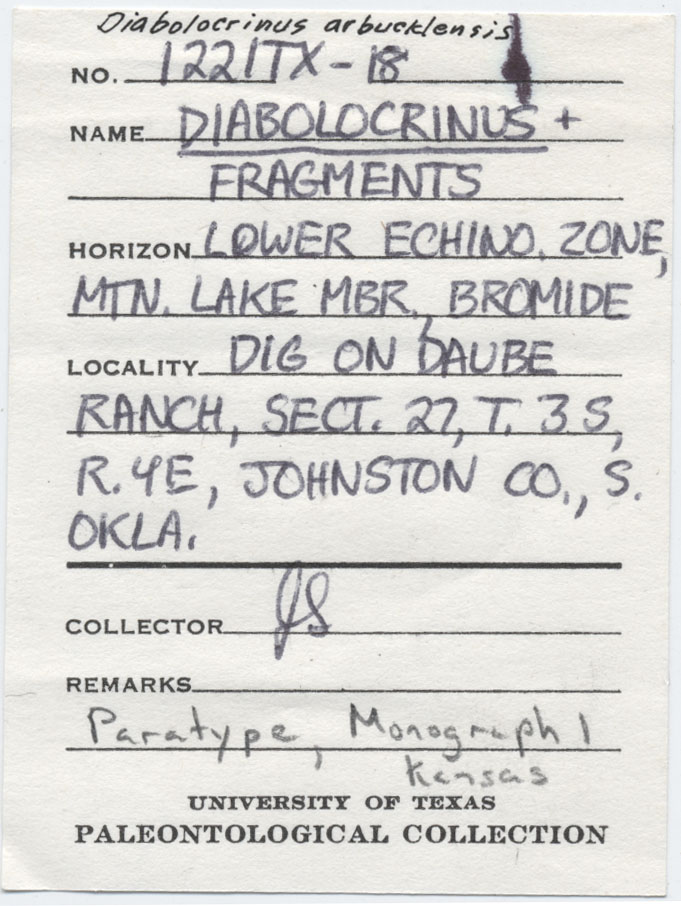 Diabolocrinus arbucklensis
NO. 1221TX-18
NAME DIABOLOCRINUS +
FRAGMENTS
HORIZON LOWER ECHINO. ZONE,
MTN. LAKE MBR., BROMIDE
LOCALITY DIG ON DAUBE
RANCH, SECT. 27, T. 3 S,
R. 4E, JOHNSTON CO., S.
OKLA.
COLLECTOR JS
REMARKS
Paratype, Monograph 1
Kansas
UNIVERSITY OF TEXAS
PALEONTOLOGICAL COLLECTION